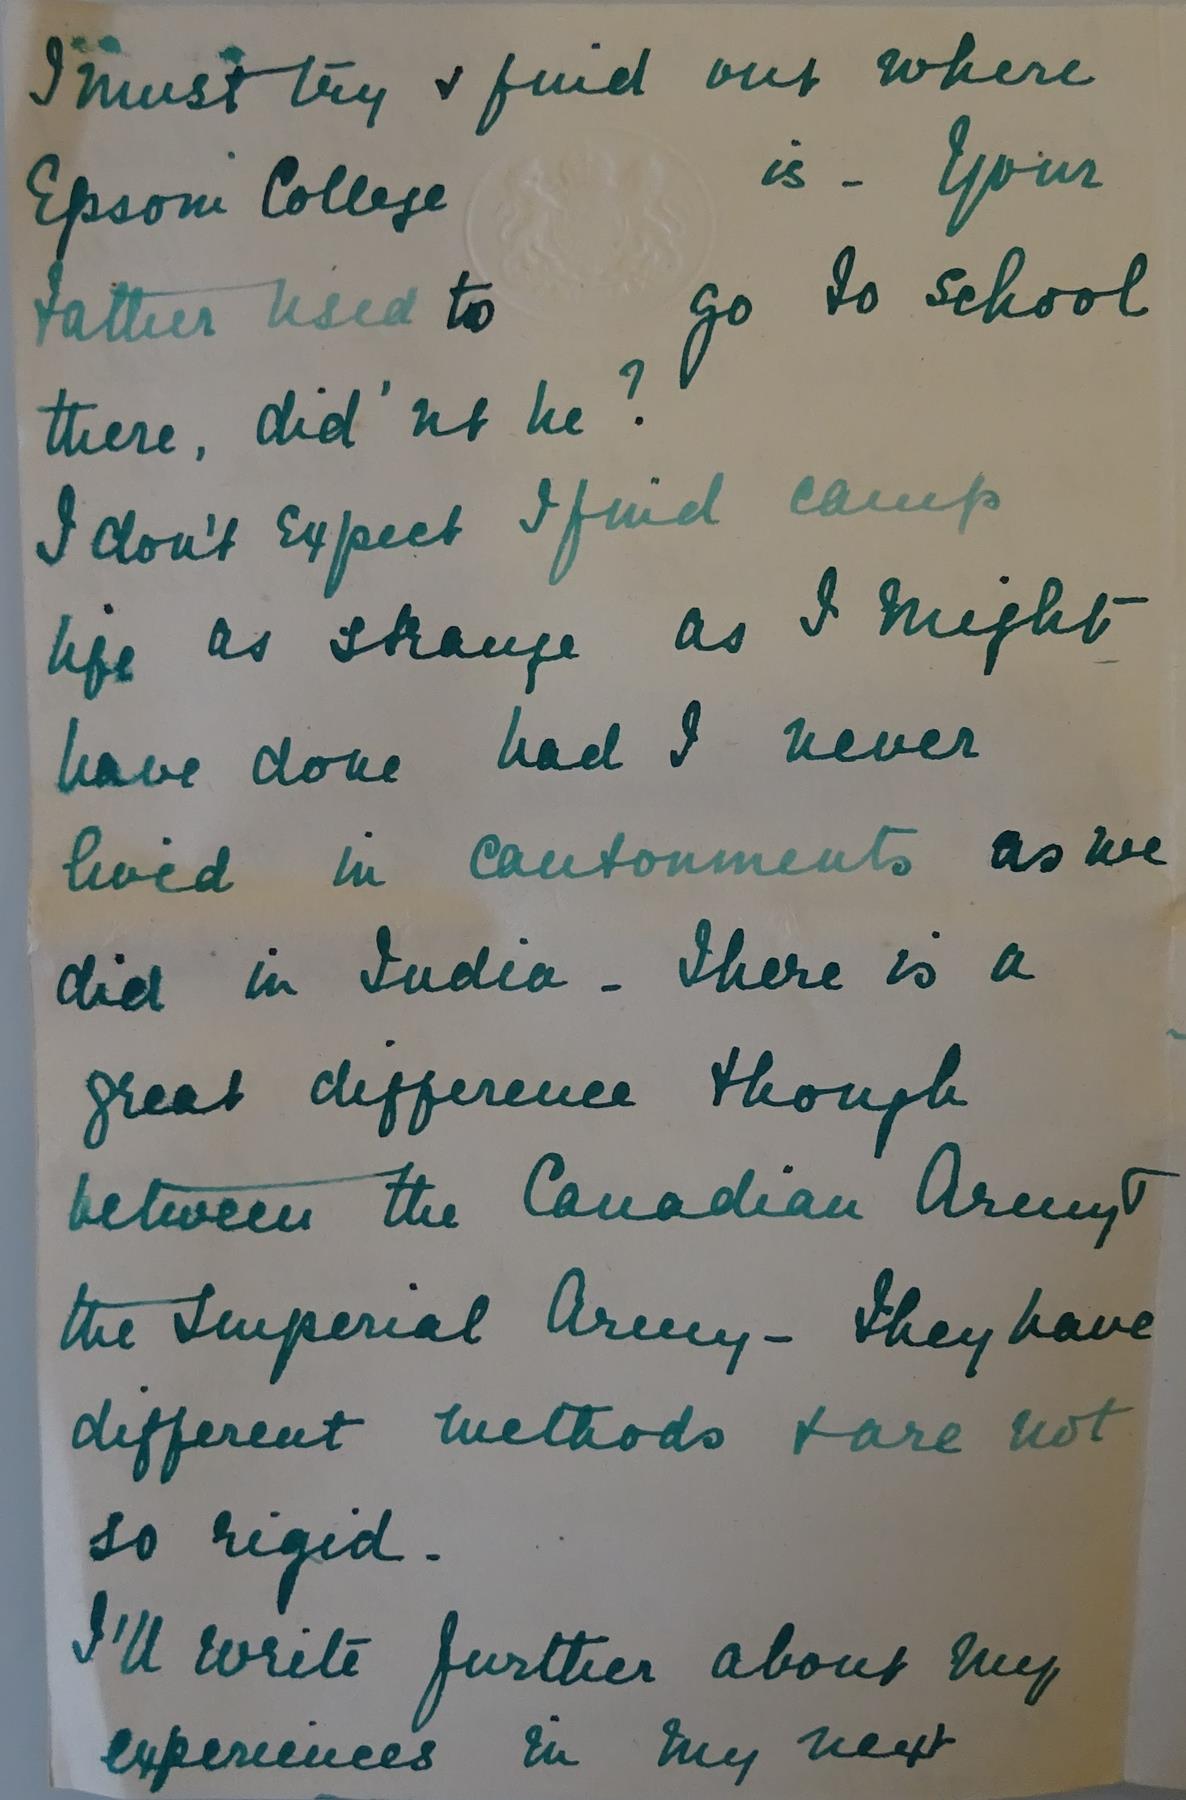 I must try & find out where
Epsom College is - Your
Father used to go to school
there, did'nt he?
I don't expect I find camp
life as strange as I might
have done had I never
lived in cantonments as we
did in India - There is a
great difference though
between the Canadian Army &
the Imperial Army - They have
different methods & are not
so rigid -
I'll write further about my
experiences in my next